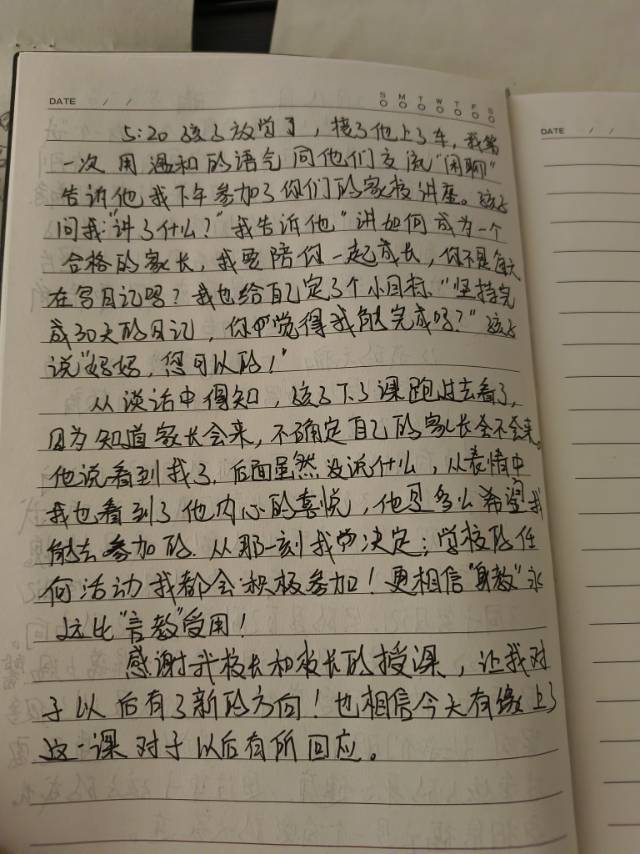 DATE / /
S M T W T F S
5:20孩子放学了，接了他上了车，我第
一次用温和的语气问他们交流"闲聊"
告诉他我下午参加了你们的家校讲座。孩子
问我："讲了什么？"我告诉他"讲如何成为一个
合格的家长，我要陪你一起成长，你不是每天
在写日记吗？我也给自己定了个小目标"坚持完
成30天的日记，你觉得我能完成吗？"孩子
说"妈妈，您可以的！"
从谈话中得知，孩子下了课跑过去看了，
因为知道家长会来，不确定自己的家长会不会来。
他说看到我了，后面虽然没说什么，从表情中
我也看到了他内心的喜悦，他是多么希望我
能去参加的。从那一刻我决定；学校的任
何活动我都会积极参加！更相信"身教"永
远比"言教"受用！
感谢我校长和校长的授课，让我对
于以后有了新的方向！也相信今天有缘上了
这一课对于以后有所回应。
DATE / /